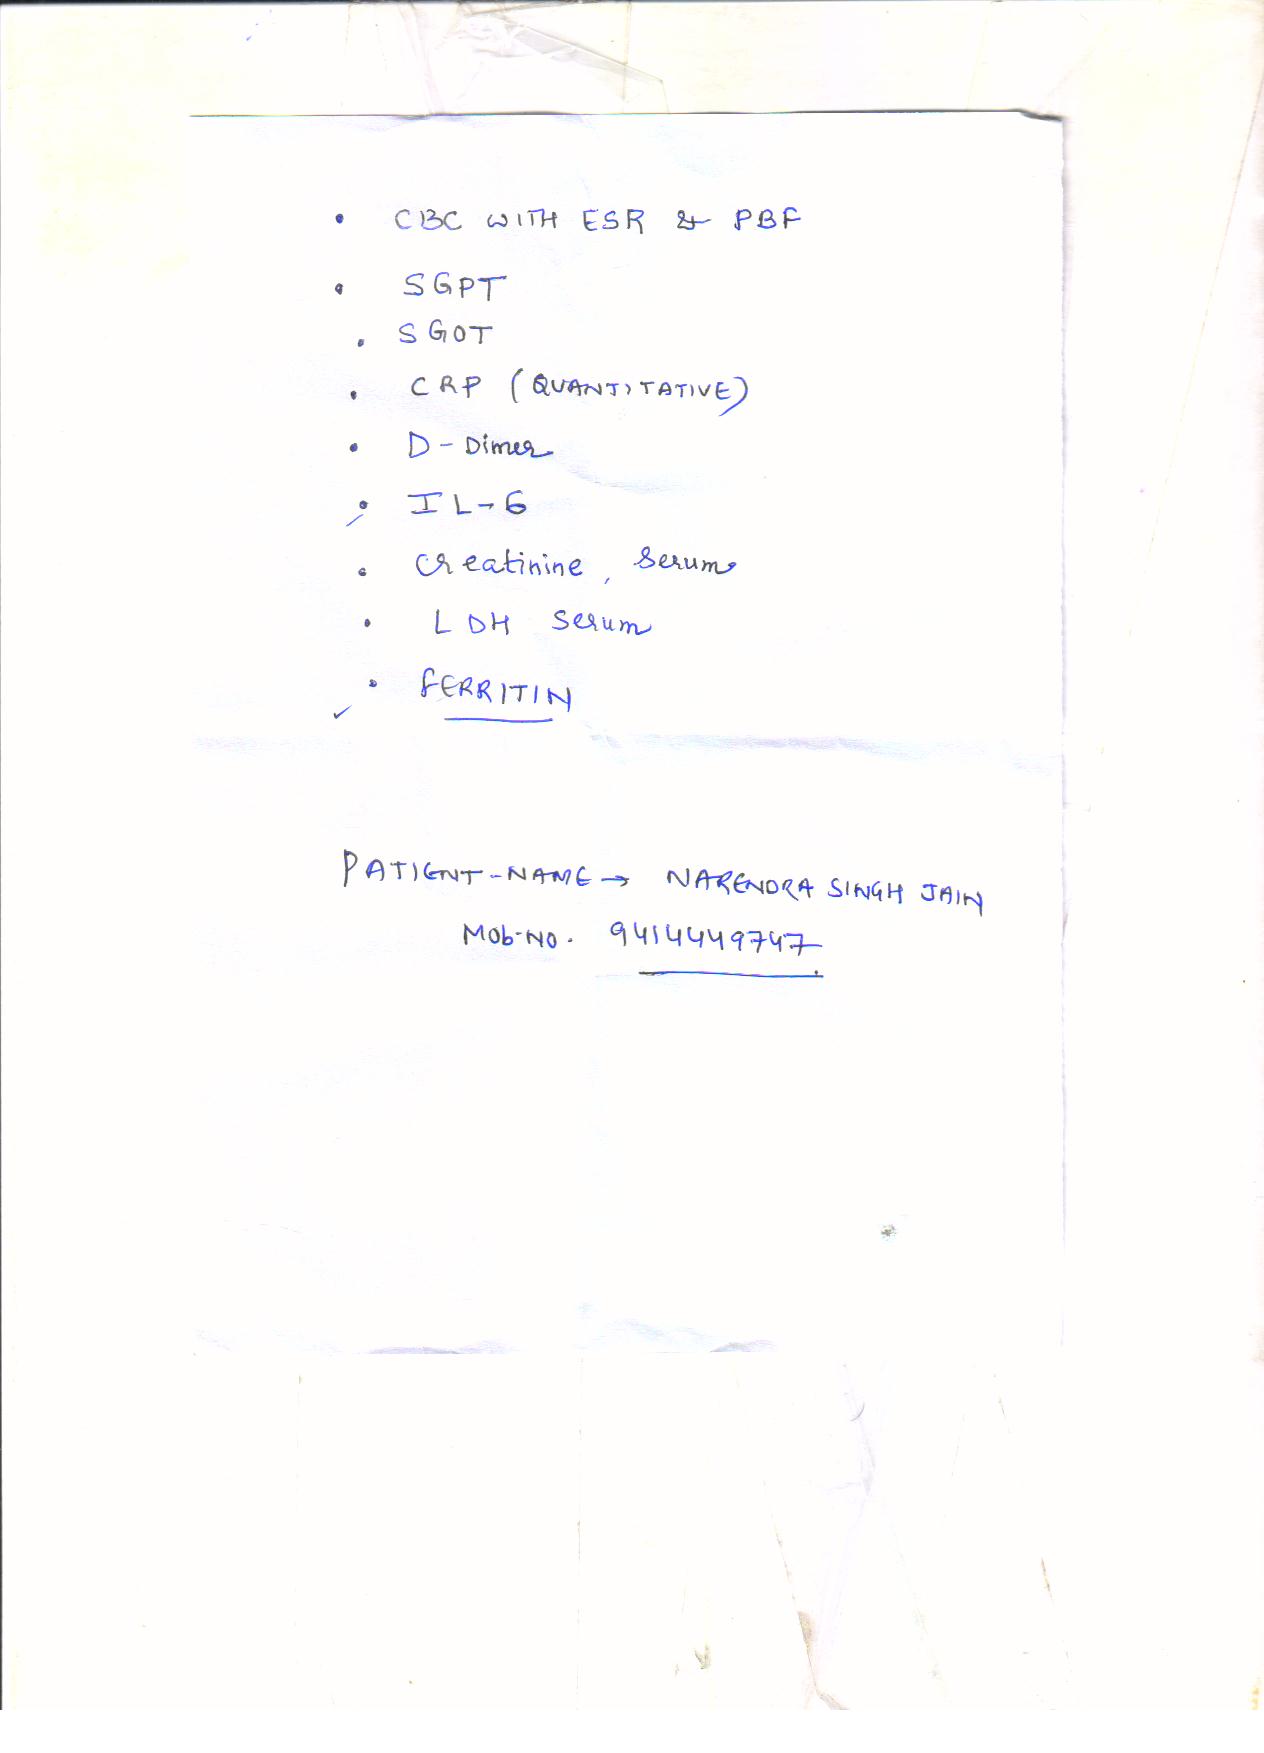 • CBC WITH ESR & PBF
• SGPT
• SGOT
• CRP (QUANTITATIVE)
• D-Dimer
• IL-6
• Creatinine, Serum
• LDH Serum
• FERRITIN
PATIENT-NAME → NARENDRA SINGH JAIN
MOb-NO. 9414449747